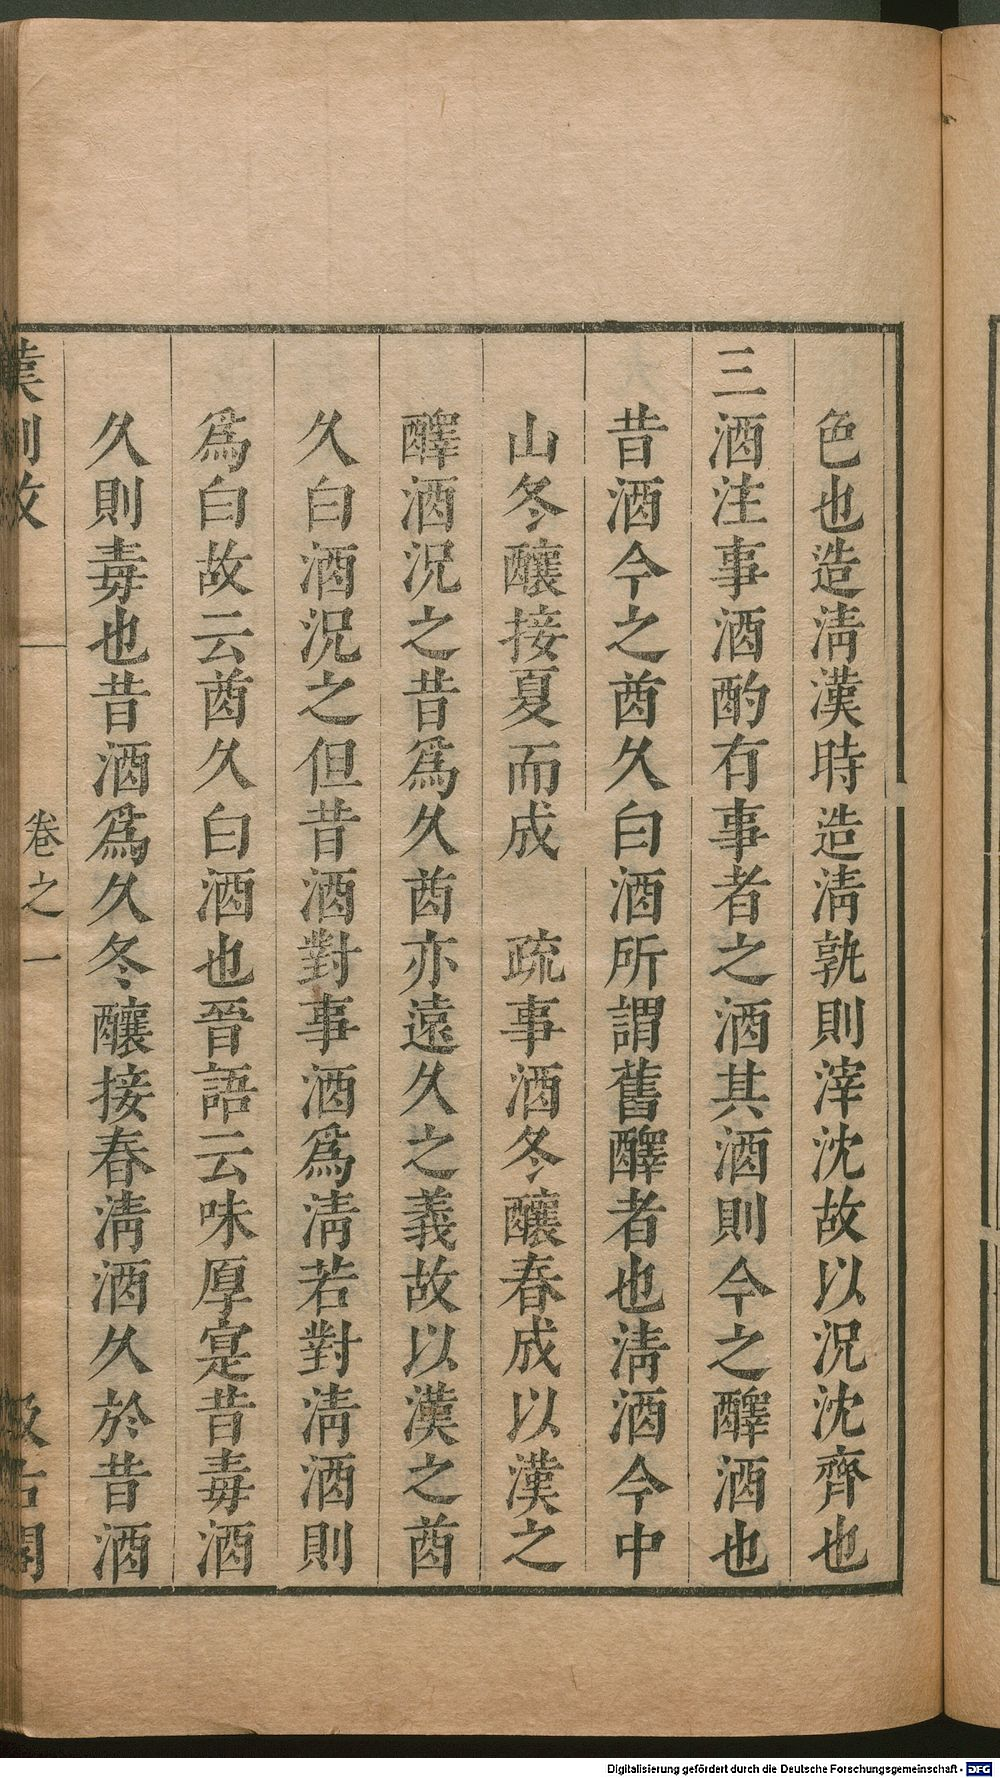 色也造清漢時造清孰則滓沈故以況沈齊也
三酒注事酒酌有事者之酒其酒則今之醳酒也
昔酒今之酋久白酒所謂舊醳者也清酒今中
山冬釀接夏而成　疏事酒冬釀春成以漢之
醳酒況之昔爲久酋亦遠久之義故以漢之酋
久白酒況之但昔酒對事酒爲清若對清酒則
爲白故云酋久白酒也晉語云味厚寔昔毒酒
久則毒也昔酒爲久冬釀接春清酒久於昔酒
漢制攷
卷之一
汲古閣
Digitalisierung gefördert durch die Deutsche Forschungsgemeinschaft - DFG